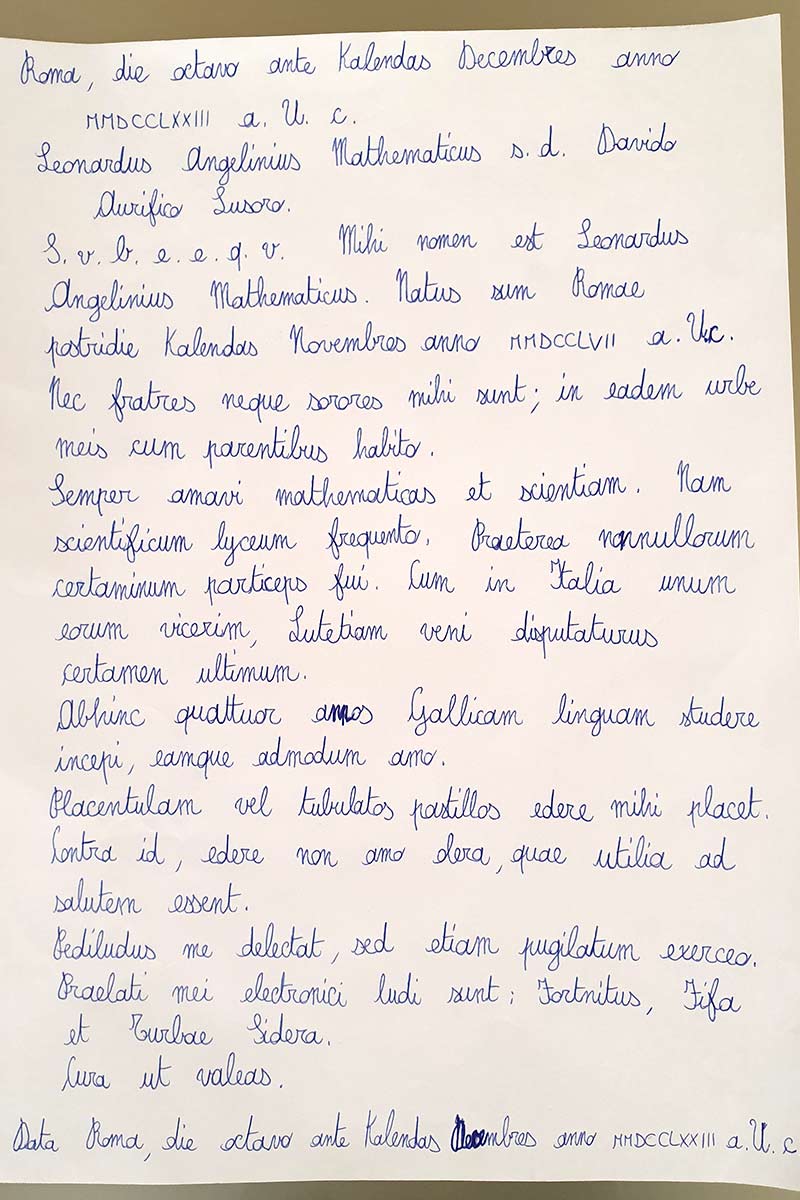 Roma, die octavo ante Kalendas Decembres anno
MMDCCLXXIII a. U. c.
Leonardus Angelinius Mathematicus s. d. Davido
Aurifico Lusoro.
S. v. b. e. e. q. v. Mihi nomen est Leonardus
Angelinius Mathematicus. Natus sum Romae
postridie Kalendas Novembres anno MMDCCLVII a. U.c.
Nec fratres neque sorores mihi sunt; in eadem urbe
meis cum parentibus habito.
Semper amavi mathematicas et scientiam. Nam
scientificum lyceum frequento. Praeterea nonnullorum
certaminum particeps fui. Cum in Italia unum
eorum vicerim, Lutetiam veni disputaturus
certamen ultimum.
Abhinc quattuor annos Gallicam linguam studere
incepi, eamque admodum amo.
Placentulam vel tubulatos pastillos edere mihi placet.
Contra id, edere non amo olera, quae utilia ad
salutem essent.
Pediludus me delectat, sed etiam pugilatum exerceo.
Praelati mei electronici ludi sunt: Fortnitus, Fifa
et Turbae Sidera.
Cura ut valeas.
Data Roma, die octavo ante Kalendas Decembres anno MMDCCLXXIII a. U. c